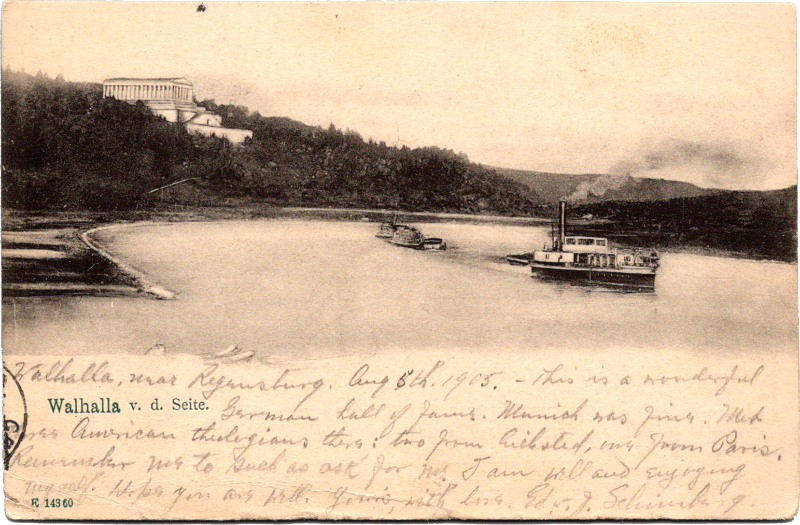 Walhalla, near Regensburg. Aug 8th. 1905. - This is a wonderful
Walhalla v. d. Seite.
German hall of fame. Munich was fine. Met
American theologians there: two from, one from Paris.
Remember me to such as ask for me. I am well and enjoying
myself. Hope you are well. Yours, with love. Edw. J.
E 14360